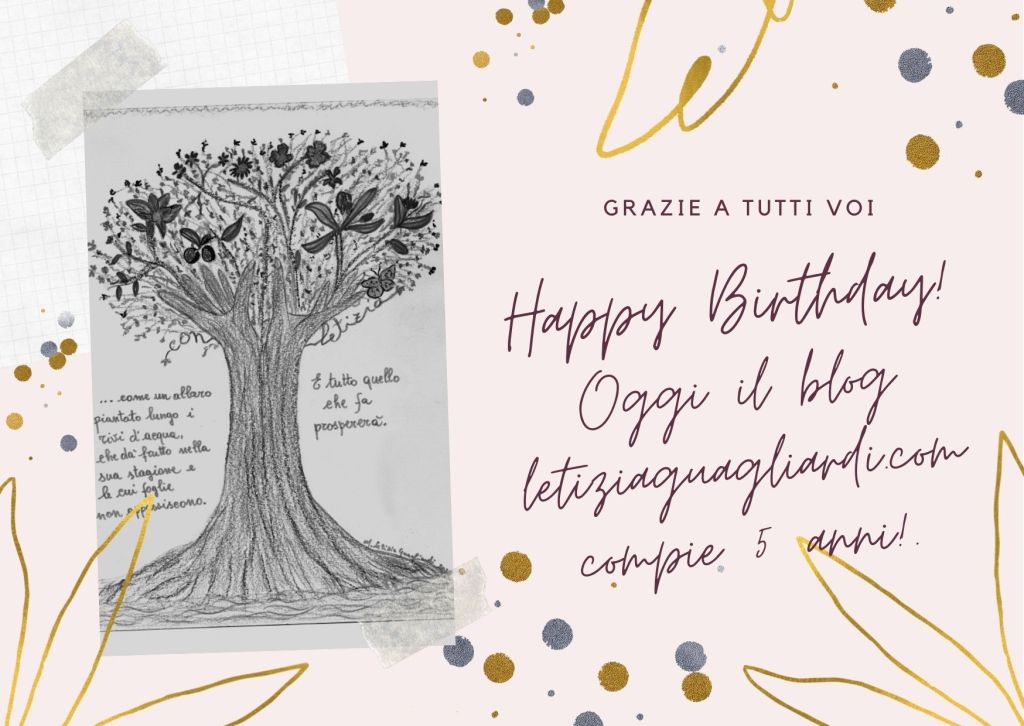 con letizia
... come un albero
piantato lungo i
rivi d'acqua,
che da' frutto nella
sua stagione e
le cui foglie
non appassiscono.
E tutto quello
che fa
prospererà.
GRAZIE A TUTTI VOI
Happy Birthday!
Oggi il blog
letiziaguagliardi.com
compie 5 anni!.